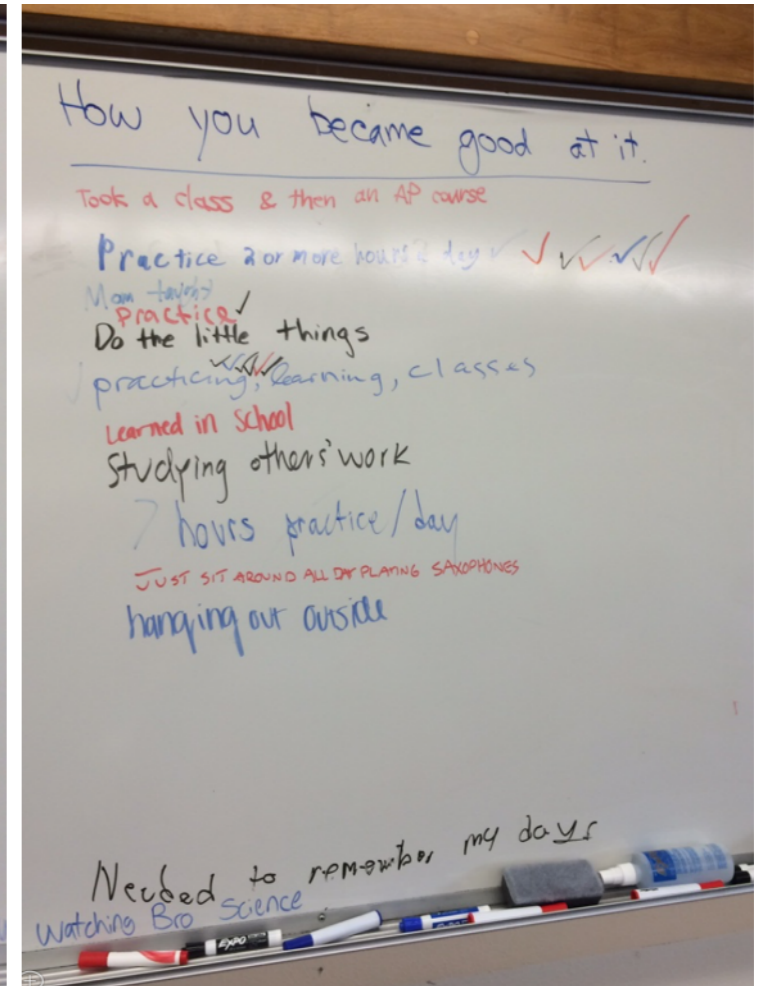 How you became good at it.
Took a class & then an AP course
Practice 2 or more hours a day
Mom taught
Practice
Do the little things
practicing, learning, classes
Learned in School
Studying others' work
7 hours practice/day
JUST SIT AROUND ALL DAY PLAYING SAXOPHONES
hanging out outside
Needed to remember my days
Watching Bro Science
EXPO